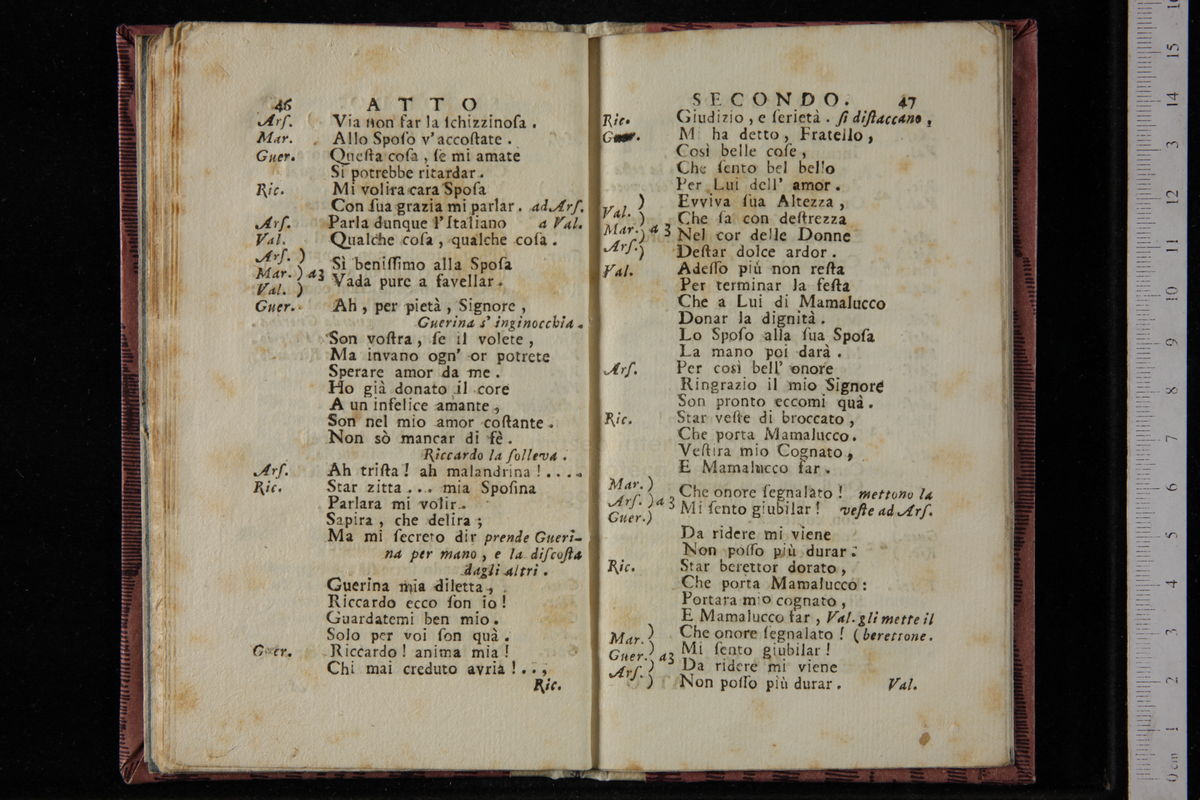 46 ATTO
Arſ. Via non far la ſchizzinoſa .
Mar. Allo Spoſo v' accoſtate .
Guer. Queſta coſa , ſe mi amate
Si potrebbe ritardar .
Ric. Mi volira cara Spoſa
Con ſua grazia mi parlar . ad Arſ.
Arſ. Parla dunque l'Italiano a Val.
Val. Qualche coſa , qualche coſa .
Arſ. )
Mar. ) a 3 Sì beniſſimo alla Spoſa
Val. ) Vada pure a favellar .
Guer. Ah , per pietà , Signore ,
Guerina s' inginocchia .
Son voſtra , ſe il volete ,
Ma invano ogn' or potrete
Sperare amor da me .
Ho già donato il core
A un infelice amante ,
Son nel mio amor coſtante .
Non sò mancar di fè .
Riccardo la ſolleva .
Arſ. Ah triſta ! ah malandrina ! . . . .
Ric. Star zitta . . . mia Spoſina
Parlara mi volir .
Sapira , che delira ;
Ma mi ſecreto dir prende Gueri-
na per mano , e la diſcoſta
dagli altri .
Guerina mia diletta ,
Riccardo ecco ſon io !
Guardatemi ben mio .
Solo per voi ſon quà .
Guer. Riccardo ! anima mia !
Chi mai creduto avria ! . . ,
Ric.
SECONDO. 47
Ric. Giudizio , e ſerietà . ſi diſtaccano ,
Guer. M' ha detto , Fratello ,
Così belle coſe ,
Che ſento bel bello
Per Lui dell' amor .
Val. ) Evviva ſua Altezza ,
Mar. ) a 3 Che ſa con deſtrezza
Arſ. ) Nel cor delle Donne
Deſtar dolce ardor .
Val. Adeſſo più non reſta
Per terminar la feſta
Che a Lui di Mamalucco
Donar la dignità .
Lo Spoſo alla ſua Spoſa
La mano poi darà .
Arſ. Per così bell' onore
Ringrazio il mio Signore
Son pronto eccomi quà .
Ric. Star veſte di broccato ,
Che porta Mamalucco .
Veſtira mio Cognato ,
E Mamalucco far .
Mar. )
Arſ. ) a 3 Che onore ſegnalato ! mettono la
Guer. ) Mi ſento giubilar ! veſte ad Arſ.
Da ridere mi viene
Non poſſo più durar .
Ric. Star berettor dorato ,
Che porta Mamalucco :
Portara mio cognato ,
E Mamalucco far , Val. gli mette il
Mar. ) Che onore ſegnalato ! ( berettone .
Guer. ) a 3 Mi ſento giubilar !
Arſ. ) Da ridere mi viene
) Non poſſo più durar . Val.
0 cm 1 2 3 4 5 6 7 8 9 10 11 12 13 14 15